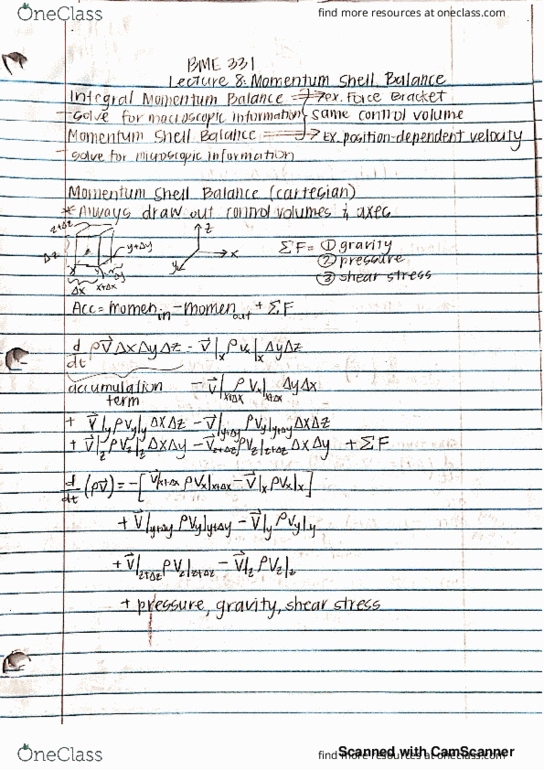 OneClass
find more resources at oneclass.com
BME 331
Lecture 8: Momentum Shell Balance
Integral Momentum Balance => ex. Force Bracket
-solve for macroscopic information} same control volume
Momentum Shell Balance => ex. position-dependent velocity
-solve for microscopic information
Momentum Shell Balance (cartesian)
*Always draw out control volumes & axes
z+Δz
Δz
y+Δy
Δy
x x+Δx
Δx
z
x
y
ΣF = ① gravity
② pressure
③ shear stress
Acc = momen_in - momen_out + ΣF
d/dt ρV⃗ ΔxΔyΔz - V⃗|x ρVx|x ΔyΔz
accumulation term - V⃗|x+Δx ρVx|x+Δx ΔyΔx
+ V⃗|y ρVy|y ΔxΔz - V⃗|y+Δy ρVy|y+Δy ΔxΔz
+ V⃗|z ρVz|z ΔxΔy - V⃗z+Δz ρVz|z+Δz ΔxΔy + ΣF
d/dt (ρV⃗) = -[V⃗|x+Δx ρVx|x+Δx - V⃗|x ρVx|x]
+ V⃗|y+Δy ρVy|y+Δy - V⃗|y ρVy|y
+ V⃗|z+Δz ρVz|z+Δz - V⃗|z ρVz|z
+ pressure, gravity, shear stress
OneClass
Scanned with CamScanner
find more resources at oneclass.com